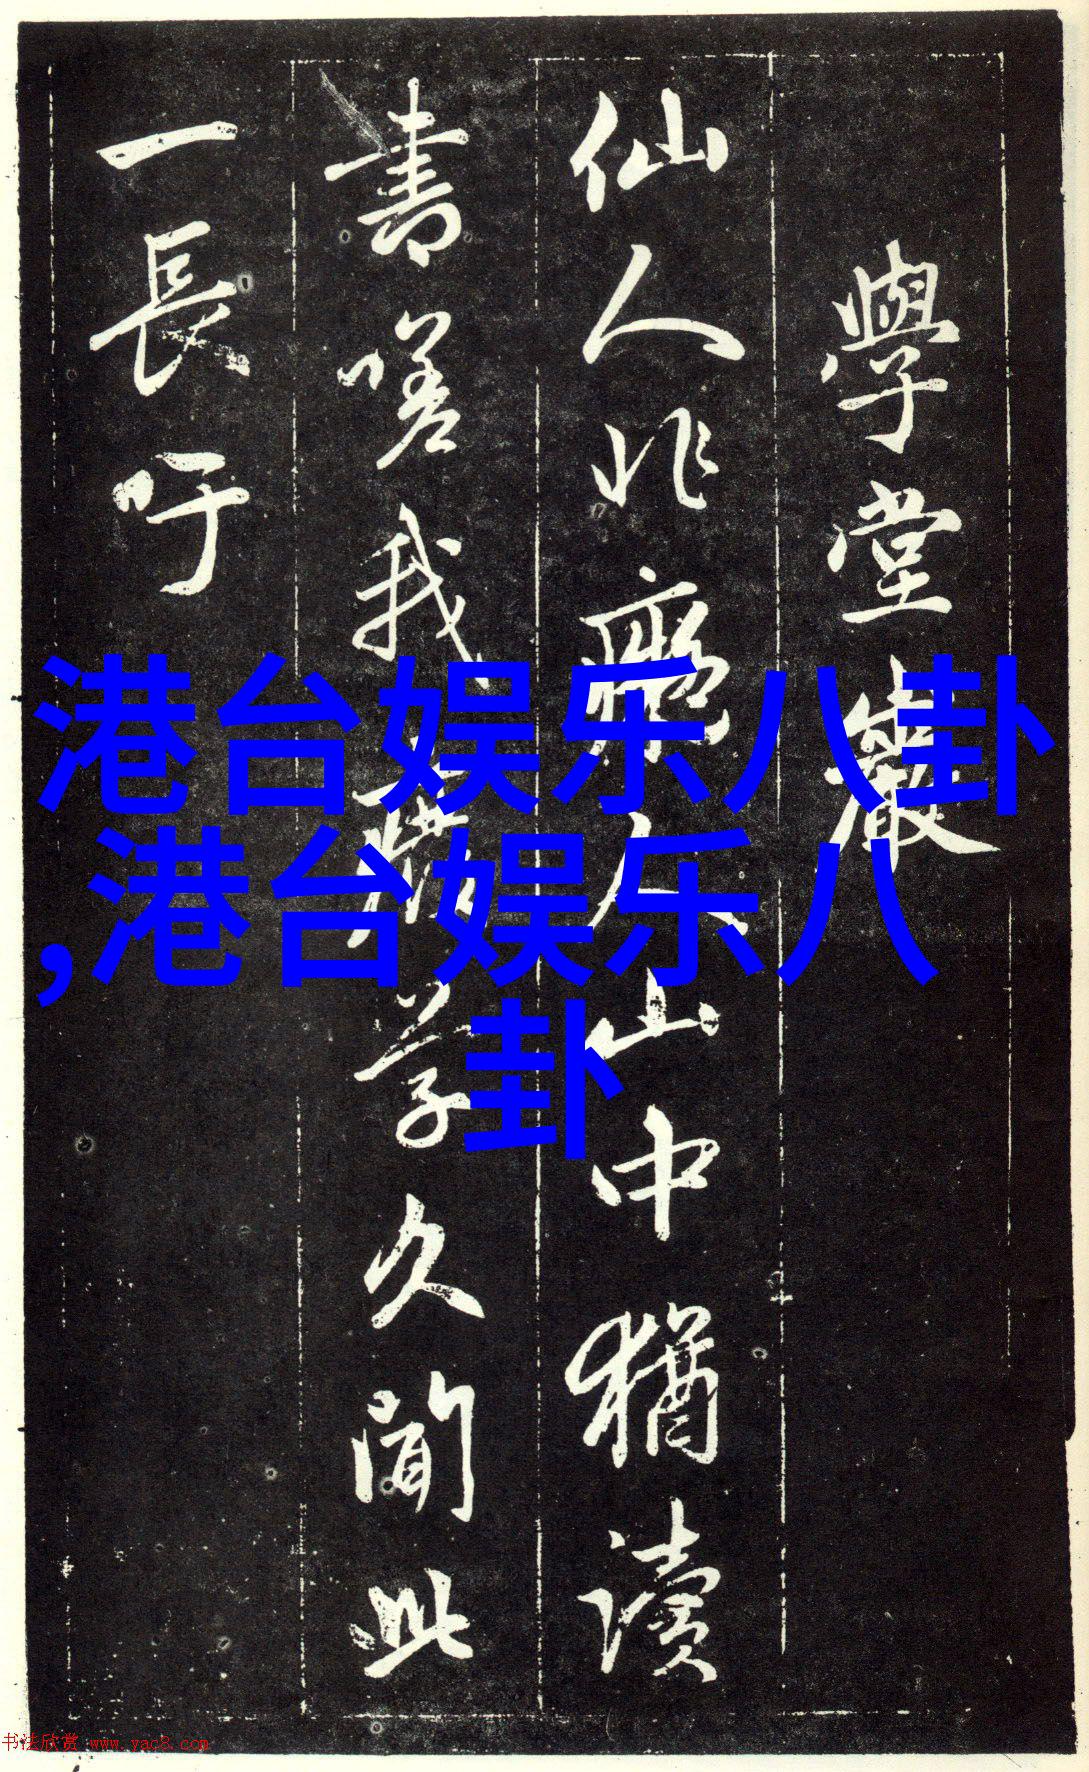 學堂巖
仙人非癯人山中猶讀
書嗟我廢學久聞此
一長吁
港台娱乐八卦
,港台娱乐八
卦
书法欣赏 www.yac8.com